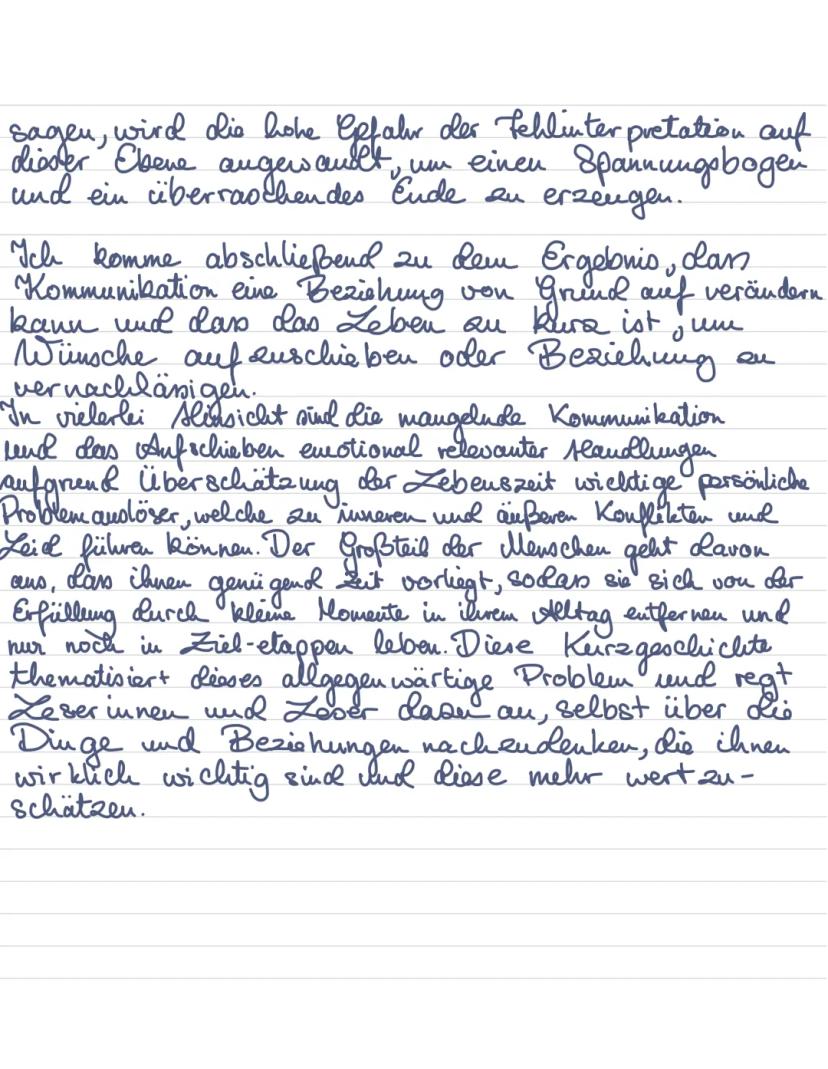 sagen, wird die hohe Gefahr der Fehlinterpretation auf
dieser Ebene angewandt, um einen Spannungsbogen
und ein überraschendes Ende zu erzeugen.
Ich komme abschließend zu dem Ergebnis, dass
Kommunikation eine Beziehung von Grund auf verändern
kann und dass das Leben zu kurz ist, um
Wünsche aufzuschieben oder Beziehung zu
vernachlässigen.
In vielerlei Hinsicht sind die mangelnde Kommunikation
und das Aufschieben emotional relevanter Handlungen
aufgrund Überschätzung der Lebenszeit wichtige persönliche
Problemauslöser, welche zu inneren und äußeren Konflikten und
Leid führen können. Der Großteil der Menschen geht davon
aus, dass ihnen genügend Zeit vorliegt, sodass sie sich von der
Erfüllung durch kleine Momente in ihrem Alltag entfernen und
nur noch in Ziel-etappen leben. Diese Kurzgeschichte
thematisiert dieses allgegenwärtige Problem und regt
Leserinnen und Leser dazu an, selbst über die
Dinge und Beziehungen nachzudenken, die ihnen
wirklich wichtig sind und diese mehr wertzu-
schätzen.